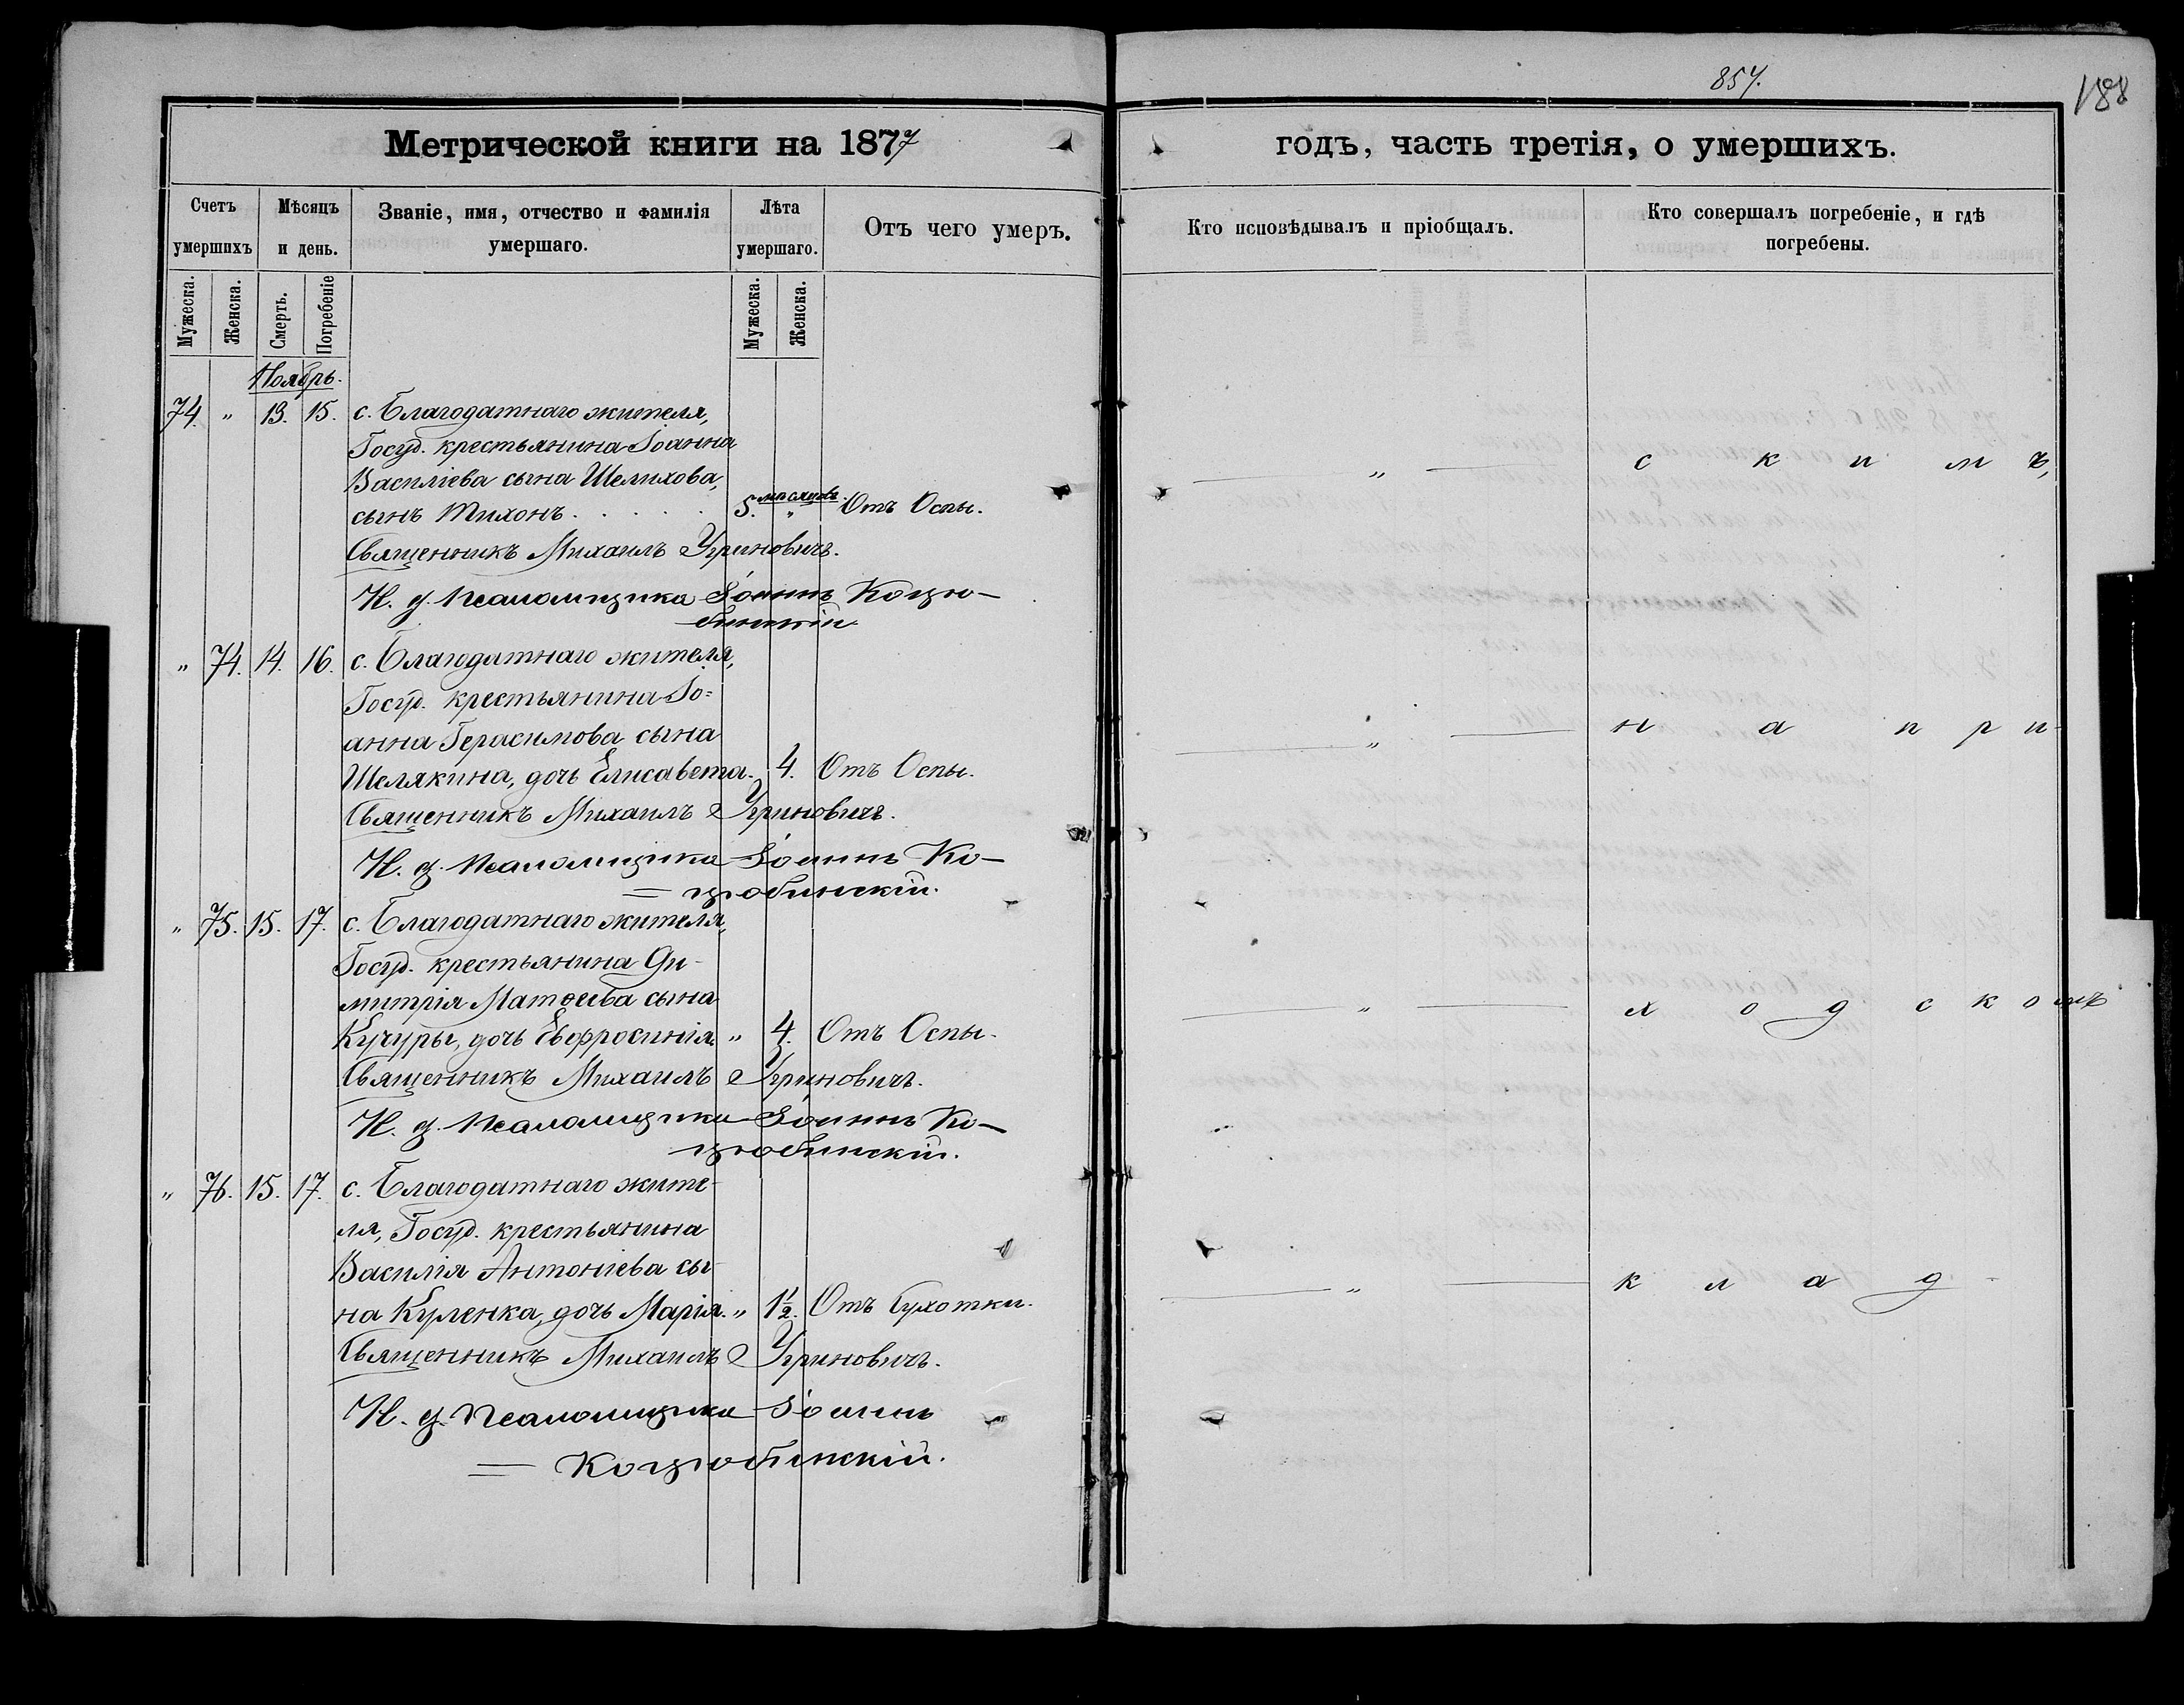 857.
188
Метрической книги на 1877
годъ, часть третія, о умершихъ.
Счетъ умершихъ
Мѣсяцъ и день.
Званіе, имя, отчество и фамилія умершаго.
Лѣта умершаго.
Отъ чего умеръ.
Кто исповѣдывалъ и пріобщалъ.
Кто совершалъ погребеніе, и гдѣ погребены.
Мужеска.
Женска.
Смерть.
Погребеніе
Мужеска.
Женска.
Ноябрь.
74. " 13. 15. с. Благодатнаго жителя,
Госуд. крестьянина Іоанна
Василіева сына Шелихова,
сынъ Тихонъ. . . . . 5. мѣсяцовъ " Отъ Оспы.
" скимъ,
Священникъ Михаилъ Угриновичъ.
И. д. Псаломщика Іоаннъ Коцю-
бинскій
" 74. 14. 16. с. Благодатнаго жителя,
Госуд. крестьянина Іо-
анна Герасимова сына
Шелякина, дочь Елисавета. 4. Отъ Оспы.
" на при-
Священникъ Михаилъ Угриновичъ.
И. д. Псаломщика Іоаннъ Ко-
цюбинскій.
" 75. 15. 17. с. Благодатнаго жителя,
Госуд. крестьянина Ди-
митрія Матѳеева сына
Кучуры, дочь Евфросинія. " 4. Отъ Оспы.
" ходскомъ
Священникъ Михаилъ Угриновичъ.
И. д. Псаломщика Іоаннъ Ко-
цюбинскій.
" 76. 15. 17. с. Благодатнаго жите-
ля, Госуд. крестьянина
Василія Антоніева сы-
на Куленка, дочь Марія. " 1½. Отъ Сухотки.
" клад-
Священникъ Михаилъ Угриновичъ.
И. д. Псаломщика Іоаннъ
Коцюбинскій.